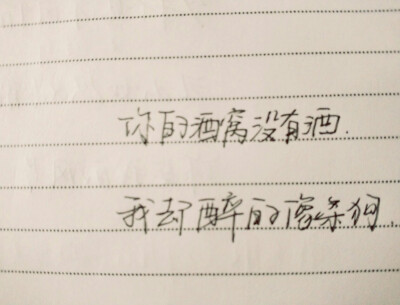 你的酒窝没有酒.
我却醉的像条狗.